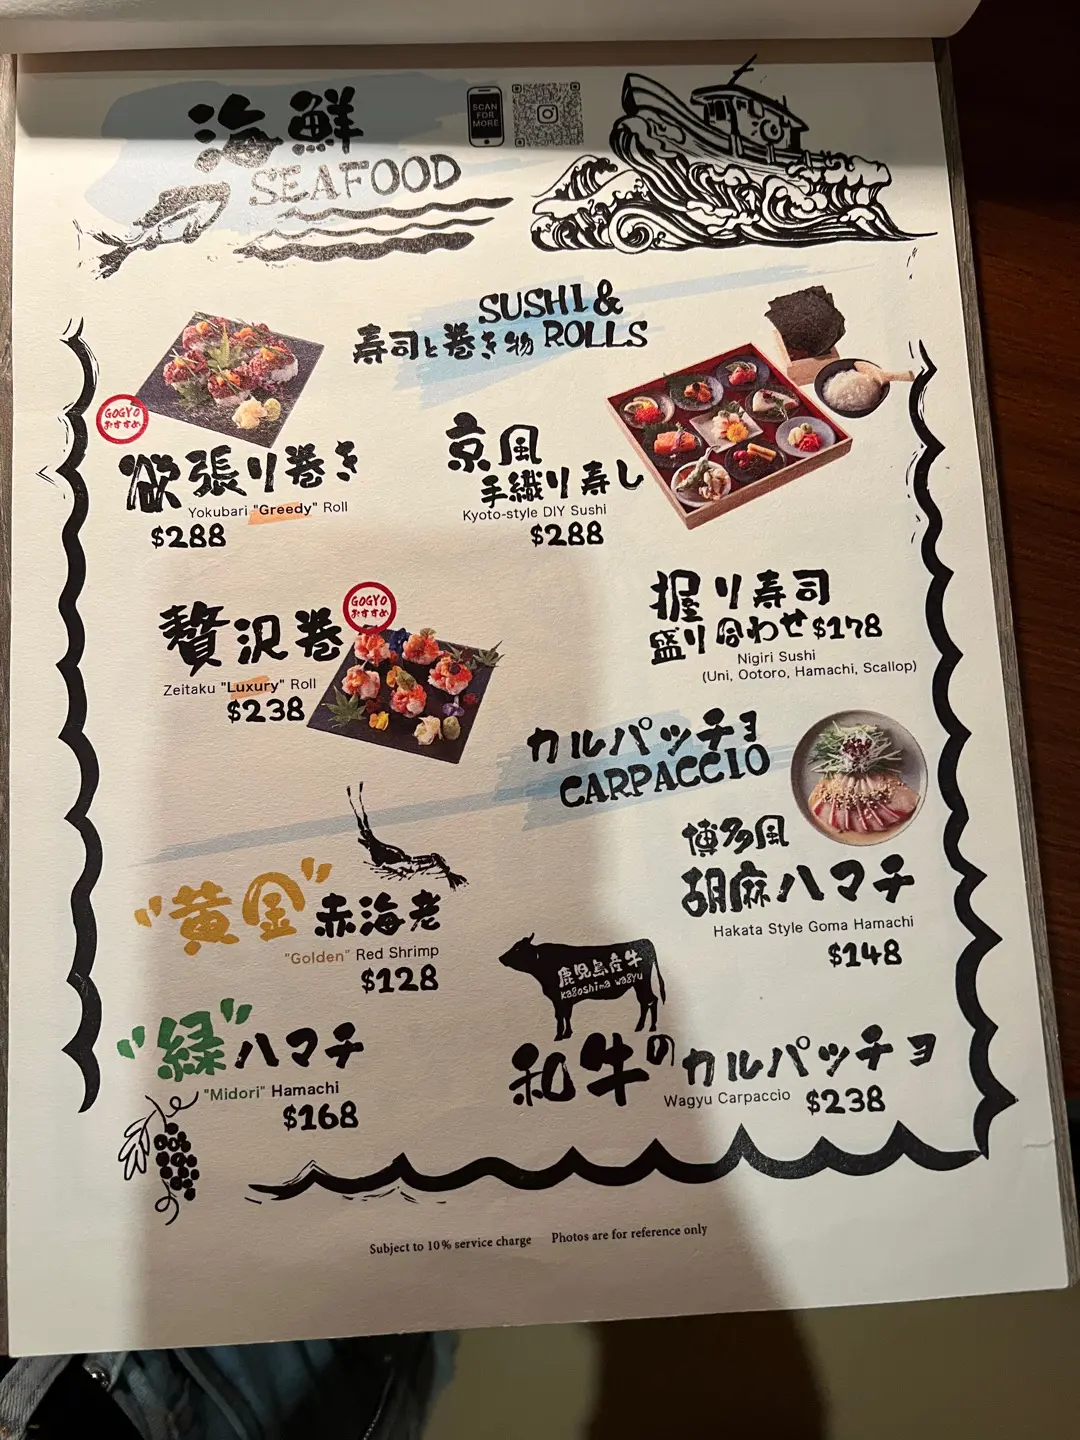 海鮮
SEAFOOD
SCAN
FOR
MORE
SUSHI &
ROLLS
寿司と巻き物
GOGYO
おすすめ
欲張り巻き
Yokubari "Greedy" Roll
$288
京風
手織り寿し
Kyoto-style DIY Sushi
$288
贅沢巻
GOGYO
おすすめ
Zeitaku "Luxury" Roll
$238
握り寿司
盛り合わせ $178
Nigiri Sushi
(Uni, Ootoro, Hamachi, Scallop)
カルパッチョ
CARPACCIO
"黄金"赤海老
"Golden" Red Shrimp
$128
博多風
胡麻ハマチ
Hakata Style Goma Hamachi
$148
"緑"ハマチ
"Midori" Hamachi
$168
鹿児島産牛
Kagoshima wagyu
和牛のカルパッチョ
Wagyu Carpaccio $238
Subject to 10% service charge Photos are for reference only